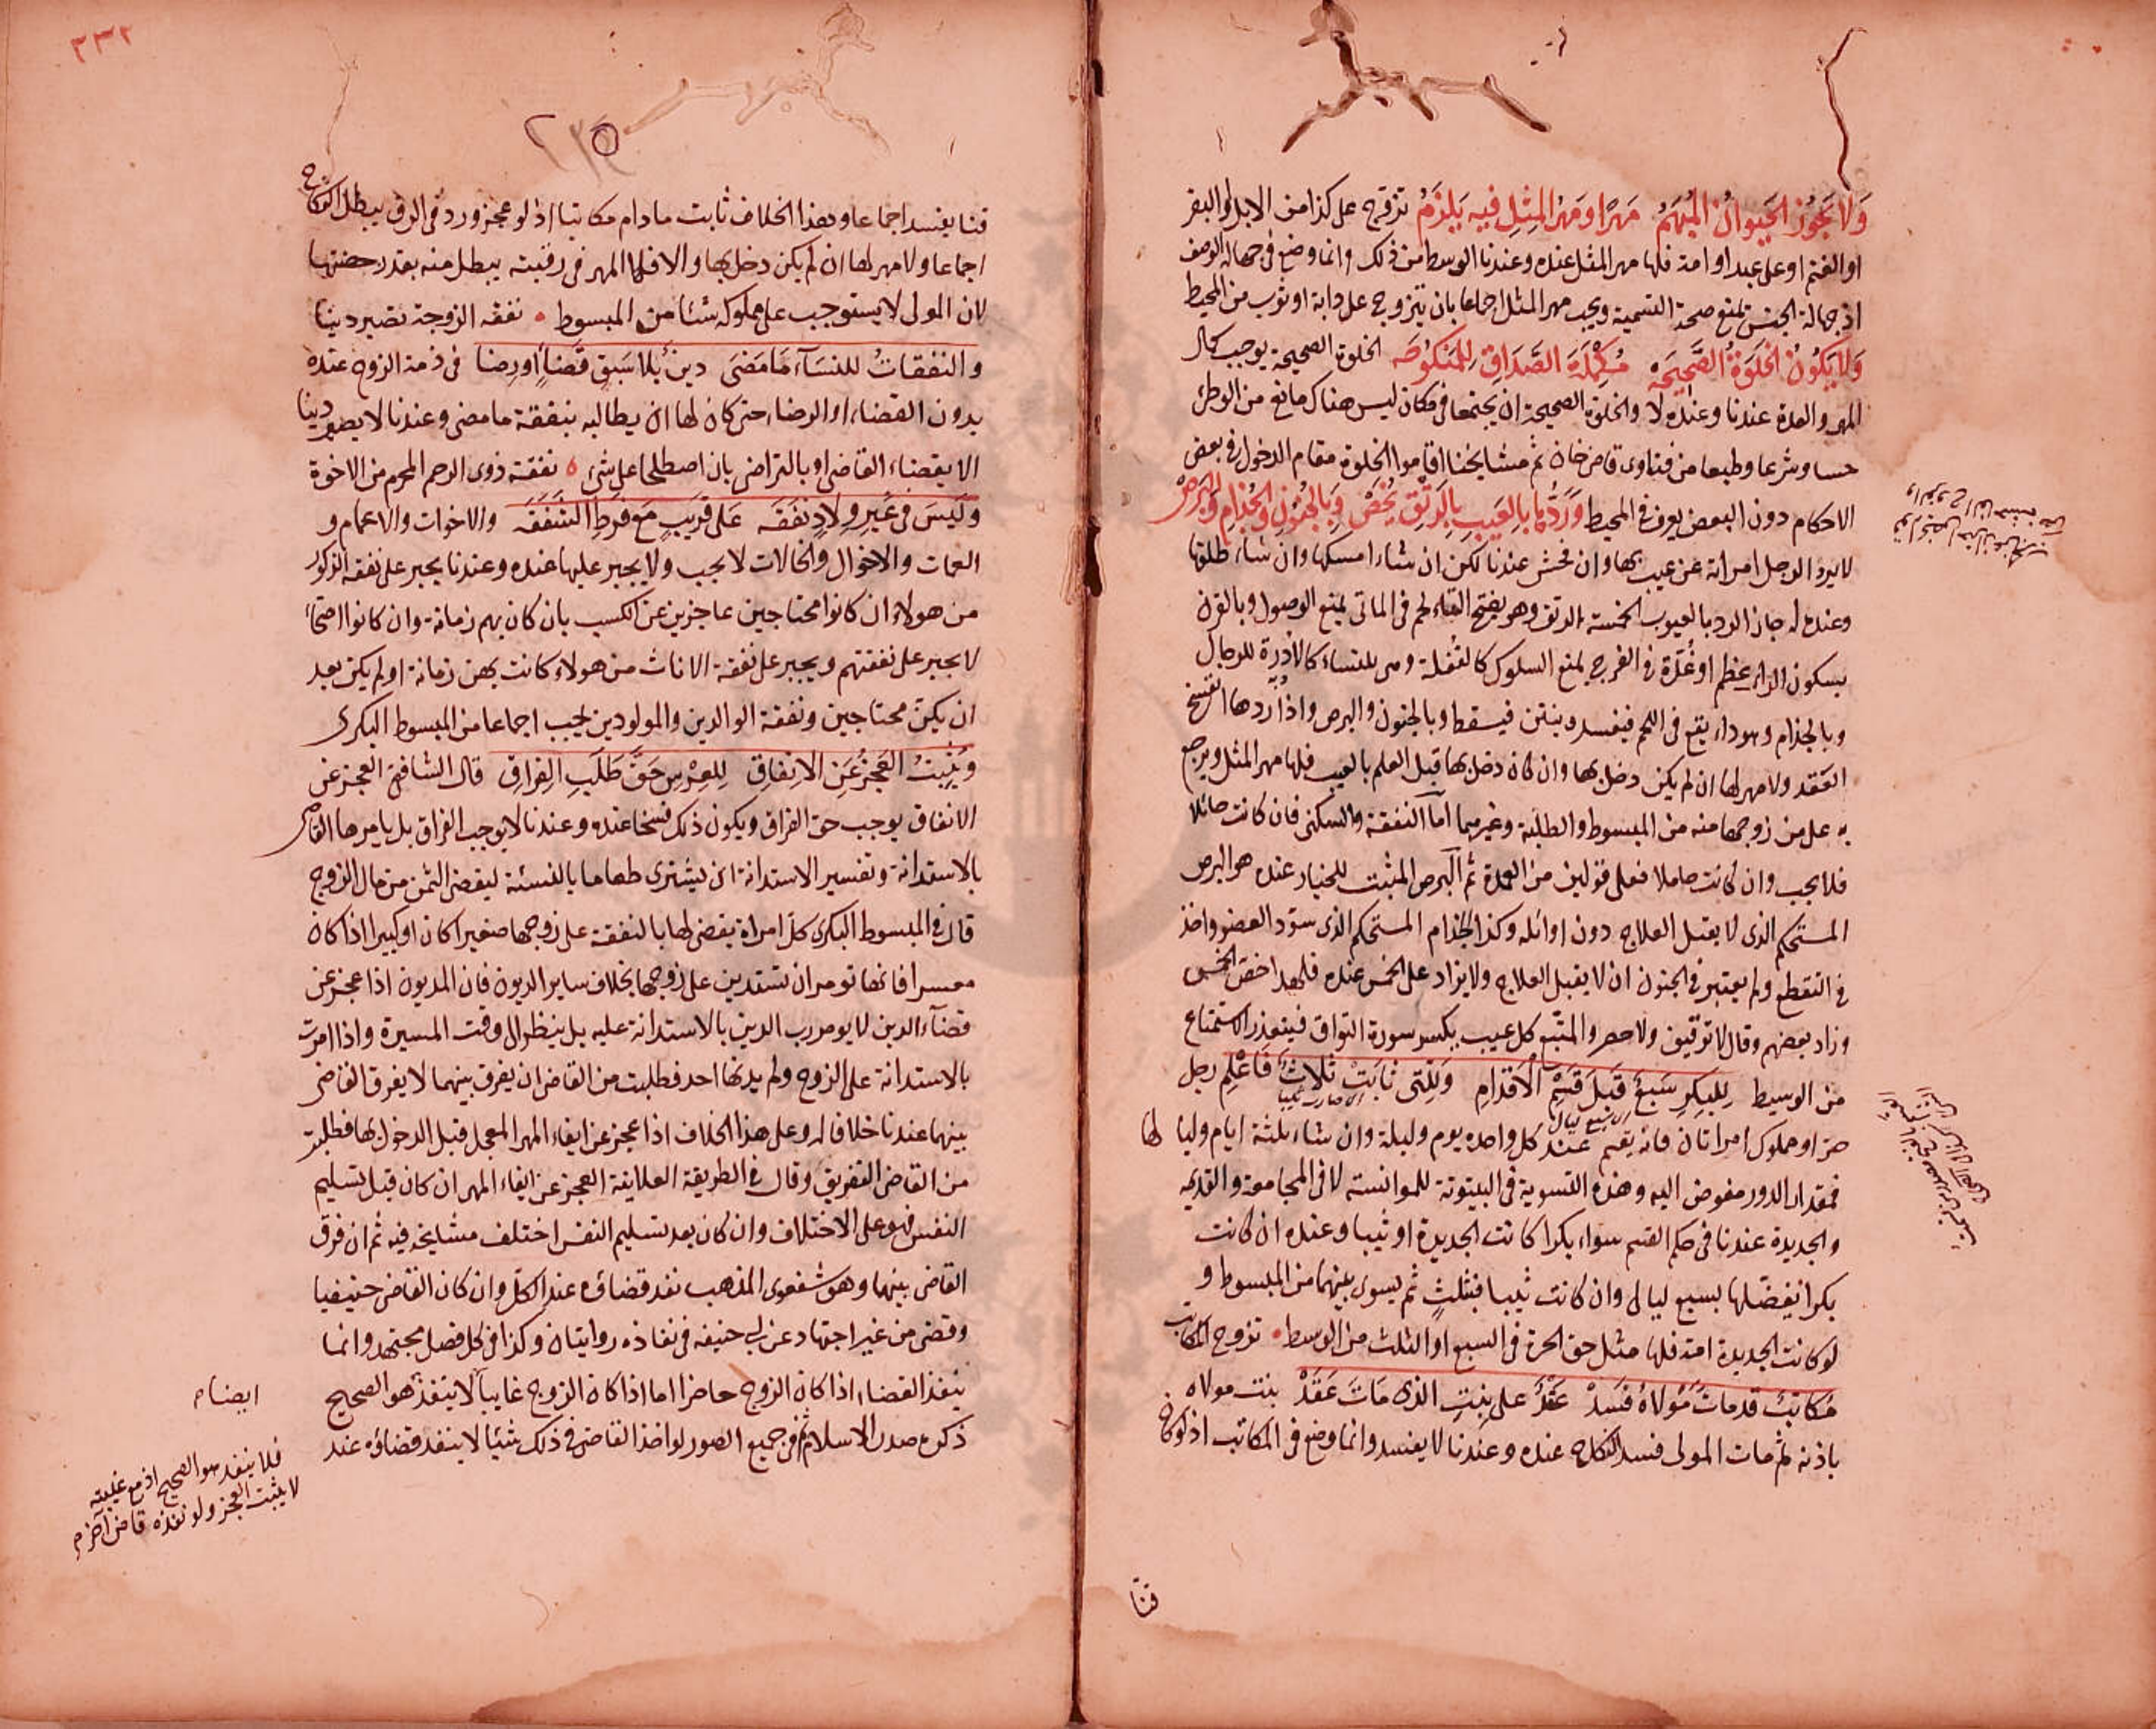 وَلَا يَجُوزُ الحَيَوانُ المُبْهَمُ مَهرًا ومَهْرُ المِثلِ فيه يَلزَمُ تزوج على كذا من الابل والبقر
او الغنم او على عبد او امة فلها مهر المثل عنده وعندنا الوسط من ذلك وانما وضع فى جهالة الوصف
اذ جهالة الجنس تمنع صحة التسمية ويجب مهر المثل اجماعا بان يتزوج على دابة او ثوب من المحيط
وَلا يَكُونُ الخَلوَةُ الصَّحِيحَة مُكمِلَةَ الصَّدَاقِ لِلمَنكُوحَه الخلوة الصحيحة يوجب كمال
المهر والعدة عندنا وعنده لا والخلوة الصحيحة ان يجتمعا فى مكان ليس هناك مانع من الوطئ
حسا وشرعا وطبعا من فتاوى قاضى خان ثم مشايخنا اقاموا الخلوة مقام الدخول فى بعض
الاحكام دون البعض يعرف فى المحيط وَرَدُّها بالعَيبِ بالرَتقِ يُخَصّ وَبالجُنُونِ والجُذامِ والبَرَصْ
لا يرد الرجل امراته عن عيب بها وان فحش عندنا لكن ان شاء امسكها وان شاء طلقها
وعنده له جاز الرد بالعيوب الخمسة الرتق وهو بفتح التاء لحم فى الماتى يمنع الوصول وبالقرن
بسكون الراء عظم او غُدّة فى الفرج يمنع السلوك كالعَفَلة وهى للنساء كالأدرة للرجال
وبالجذام وهو داء يقع فى اللحم فيفسد وينتن فيسقط وبالجنون والبرص واذا ردها انفسخ
العقد ولا مهر لها ان لم يكن دخل بها وان كان دخل بها قبل العلم بالعيب فلها مهر المثل ويرجع
به على من زوجها منه من المبسوط والطلبة وغيرهما اما النفقة والسكنى فان كانت حائلا
فلا يجب وان كانت حاملا فعلى قولين من العمدة ثم البرص المثبت للخيار عنده هو البرص
المستحكم الذى لا يقبل العلاج دون اوائله وكذا الجذام المستحكم الذى سود العضو واخذ
فى التقطع ولم يعتبر فى الجنون ان لا يقبل العلاج ولا يزاد على الخمس عنده فلهذا خص الخمس
وزاد بعضهم وقال لا توقيف ولا حصر والمتبع كل عيب يكسر سورة التواق فيتعذر الاستمتاع
من الوسيط لِلبِكرِ سَبعٌ قَبلَ قَسْمِ الاَقدامِ وَللِّتى ثابَتْ ثلاثٌ فَاعْلِمِ رجل
حر او مملوك امراتان فانه يقيم عند كل واحده يوم وليلة وان شاء ثلثة ايام وليا لها
فمقدار الدور مفوض اليه وهذه التسوية فى البيتوتة للموانسة لا فى المجامعة والقديمة
والجديدة عندنا فى حكم القسم سواء بكرا كانت الجديدة او ثيبا وعنده ان كانت
بكرا يفضلها بسبع ليال وان كانت ثيبا فبثلثٍ ثم يسوى بينهما من المبسوط و
لو كانت الجديدة امة فلها مثل حق الحرة فى السبع او الثلث من الوسيط • تزوج المكاتب
مُكاتَبٌ قد ماتَ مَوْلاهُ فَسَدْ عَقدٌ على بِنتِ الذى مَاتَ عَقَدْ بنت مولاه
باذنه ثم مات المولى فسد النكاح عنده وعندنا لا يفسد وانما وضع فى المكاتب اذ لو كان
قنّا
٢٣٢
قنا يفسد اجماعا وهذا الخلاف ثابت ما دام مكاتبا اذ لو عجز ورد فى الرق يبطل النكاح
اجماعا ولا مهر لها ان لم يكن دخل بها والا فلها المهر فى رقبته يبطل منه بقدر حصتها
لان المولى لا يستوجب على مملوكه شئا من المبسوط • نفقة الزوجة تصير دينا
والنفقاتُ للنسَآء مَا مَضَى دينٌ بلا سَبقِ قَضاءٍ اورِضا فى ذمة الزوج عنده
بدون القضاء او الرضاء حتى كان لها ان يطالبه بنفقة ما مضى وعندنا لا يصير دينا
الا بقضاء القاضى او بالتراضى بان اصطلحا على شئ ه نفقة ذوى الرحم المحرم من الاخوة
وَليَسَ فى غَيرِ وِلادٍ نفَقَه عَلى قريبٍ مَع فَرطِ الشَفَقَه والاخوات والاعمام و
العمات والاخوال والخالات لا يجب ولا يجبر عليها عنده وعندنا يجبر على نفقة الذكور
من هولاء ان كانوا محتاجين عاجزين عن الكسب بان كان بهم زمانة وان كانوا اصحاء
لا يجبر على نفقتهم ويجبر على نفقة الاناث من هولاء كانت بهن زمانة او لم يكن بعد
ان يكن محتاجين ونفقة الوالدين والمولودين يجب اجماعا من المبسوط البكرى
وَيُثبِتُ العَجزُ عَنِ الاِنفاقِ لِلعِرْسِ حَقَّ طَلَبِ الفِراقِ قال الشافعى العجز عن
الانفاق يوجب حق الفراق ويكون ذلك فسخا عنده وعندنا لا يوجب الفراق بل يامرها القاضى
بالاستدانة وتفسير الاستدانة ان يشترى طعاما بالنسئة ليقضى الثمن من مال الزوج
قال فى المبسوط البكرى كل امراة يقضى لها بالنفقة على زوجها صغيرا كان او كبيرا اذا كان
معسرا فانها تومر ان تستدين على زوجها بخلاف ساير الديون فان المديون اذا عجز عن
قضآء الدين لا يومر رب الدين بالاستدانة عليه بل ينظر الى وقت الميسرة واذا امرت
بالاستدانة على الزوج ولم يدنها احد فطلبت من القاضى ان يفرق بينهما لا يفرق القاضى
بينهما عندنا خلافا له وعلى هذا الخلاف اذا عجز عن ايفاء المهر المعجل قبل الدخول بها فطلبت
من القاضى التفريق وقال فى الطريقة العلائية العجز عن ايفاء المهر ان كان قبل تسليم
النفس فهو على الاختلاف وان كان بعد تسليم النفس اختلف مشايخه فيه ثم ان فرق
القاضى بينهما وهو شفعوى المذهب نفذ قضاؤه عند الكل وان كان القاضى حنيفيا
وقضى من غير اجتهاد عن ابى حنيفه فى نفاذه روايتان وكذا فى كل فصل مجتهد وانما
ينفذ القضاء اذا كان الزوج حاضرا اما اذا كان الزوج غايبا لا ينفذ هو الصحيح
ذكره صدر الاسلام ثم فى جميع الصور لو اخذ القاضى فى ذلك شيئا لا ينفذ قضاؤه عند
ايضا م
فلا ينفذ هو الصحيح اذ مع غيبته
لا يثبت العجز ولو نفذه قاض آخر م